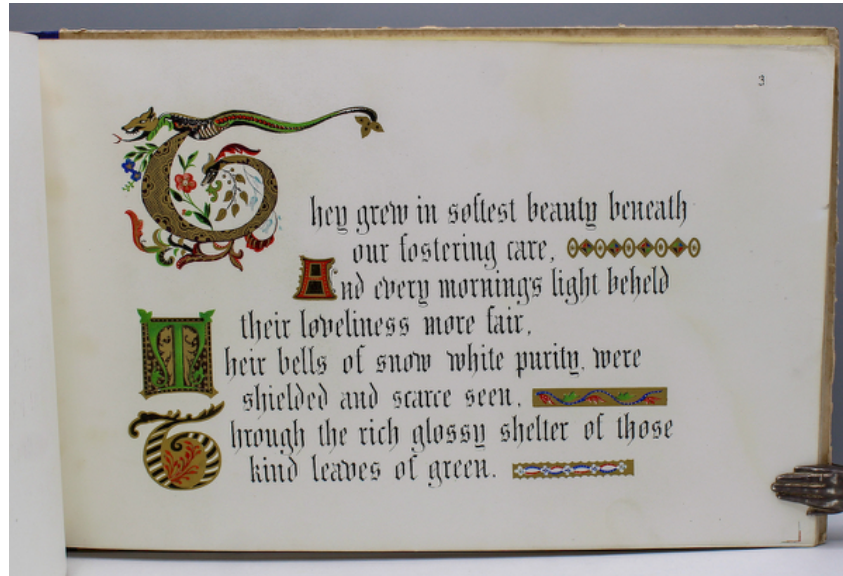 3
They grew in softest beauty beneath
our fostering care,
And every morning's light beheld
their loveliness more fair,
Their bells of snow white purity, were
shielded and scarce seen,
Through the rich glossy shelter of those
kind leaves of green.